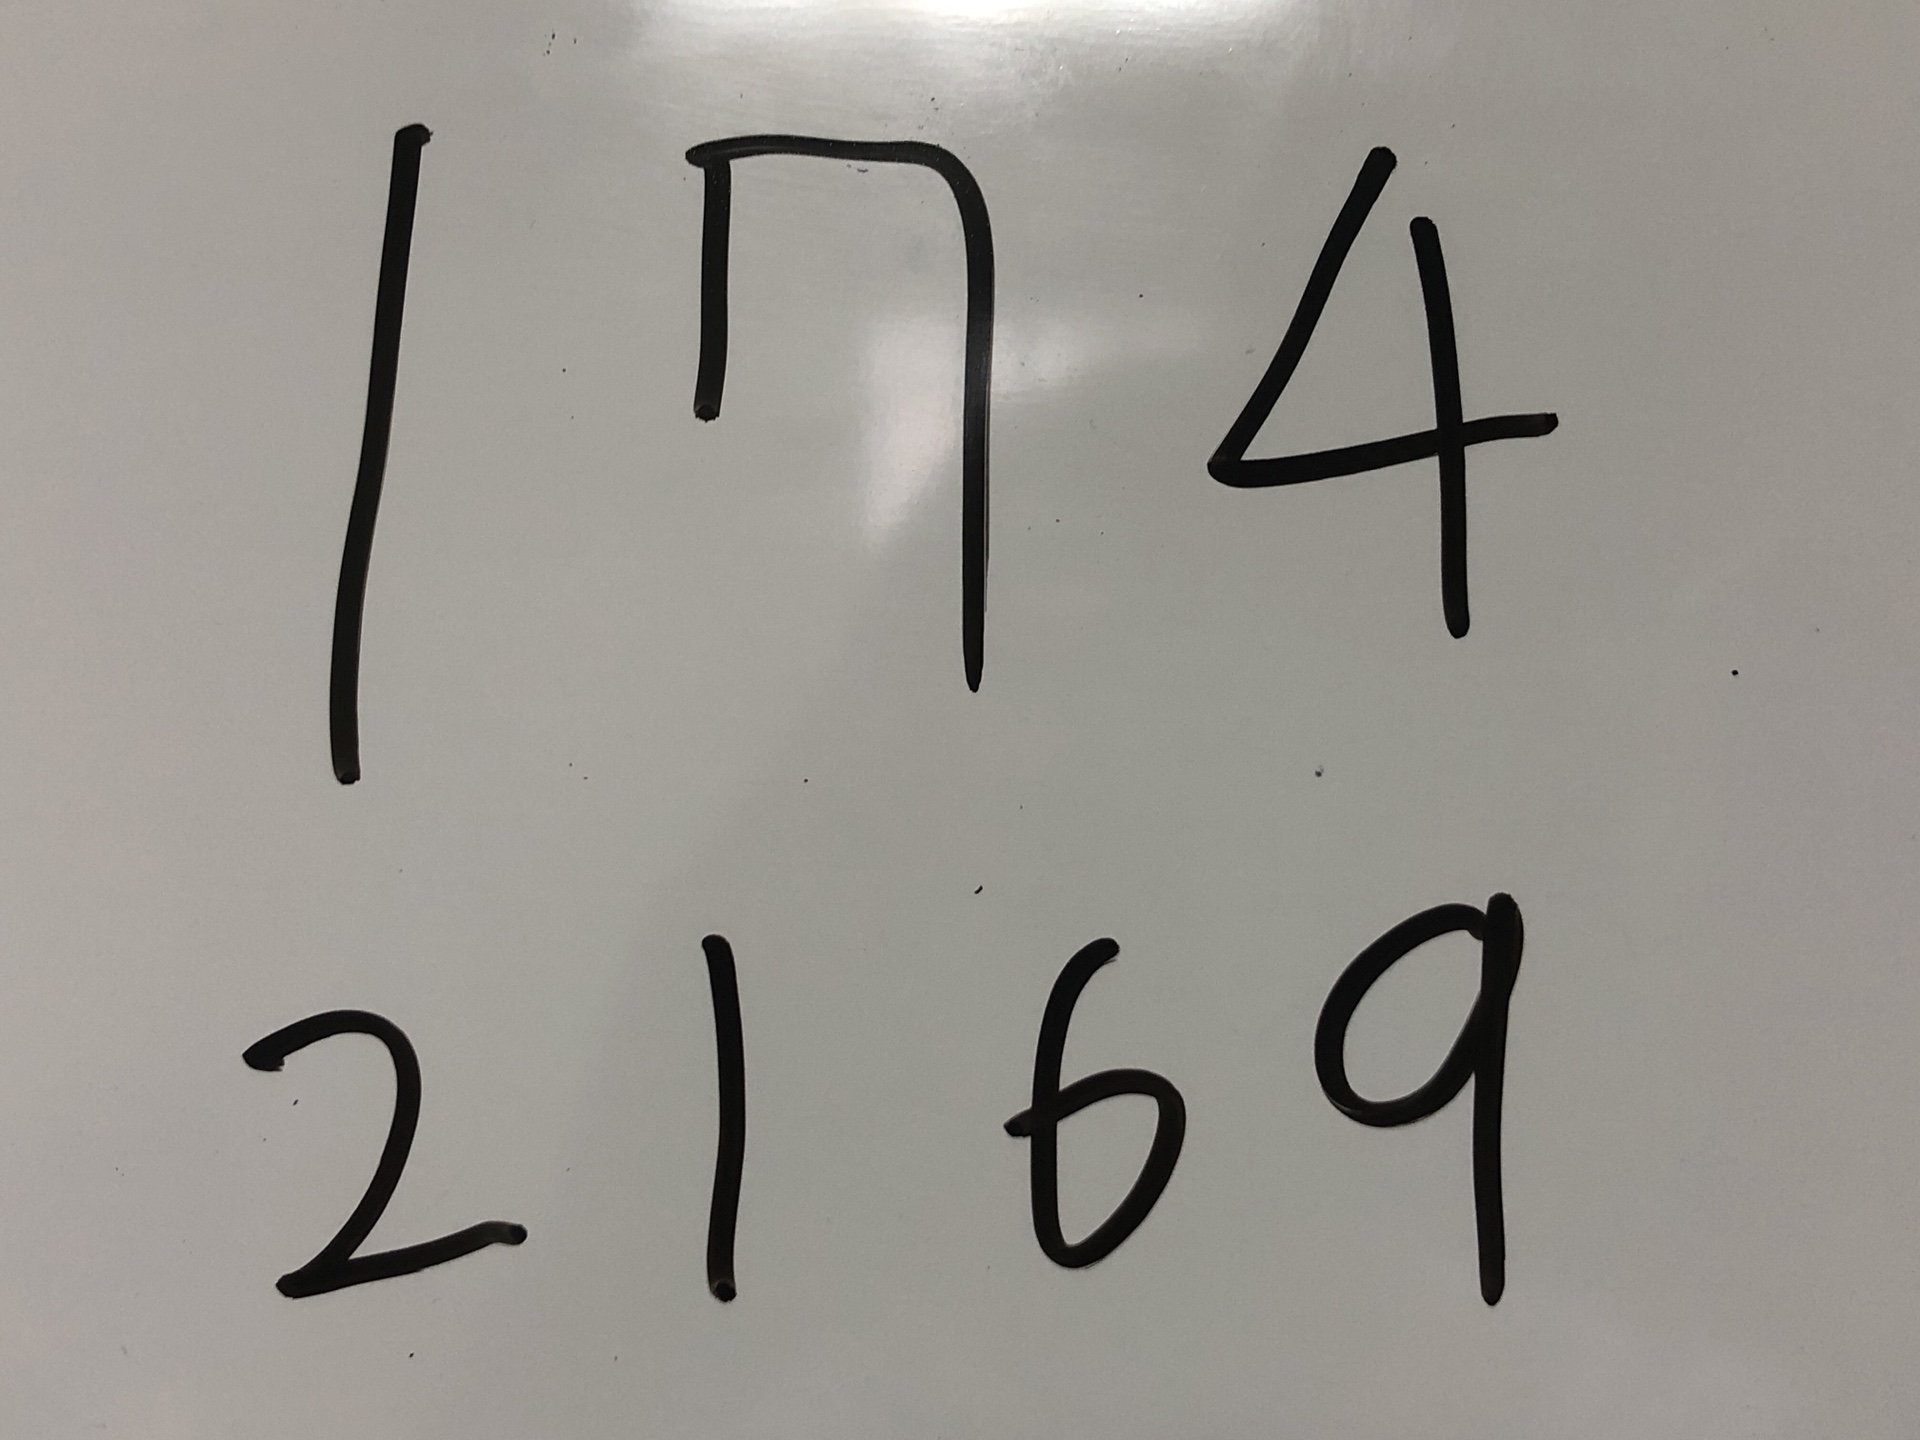 174
2169